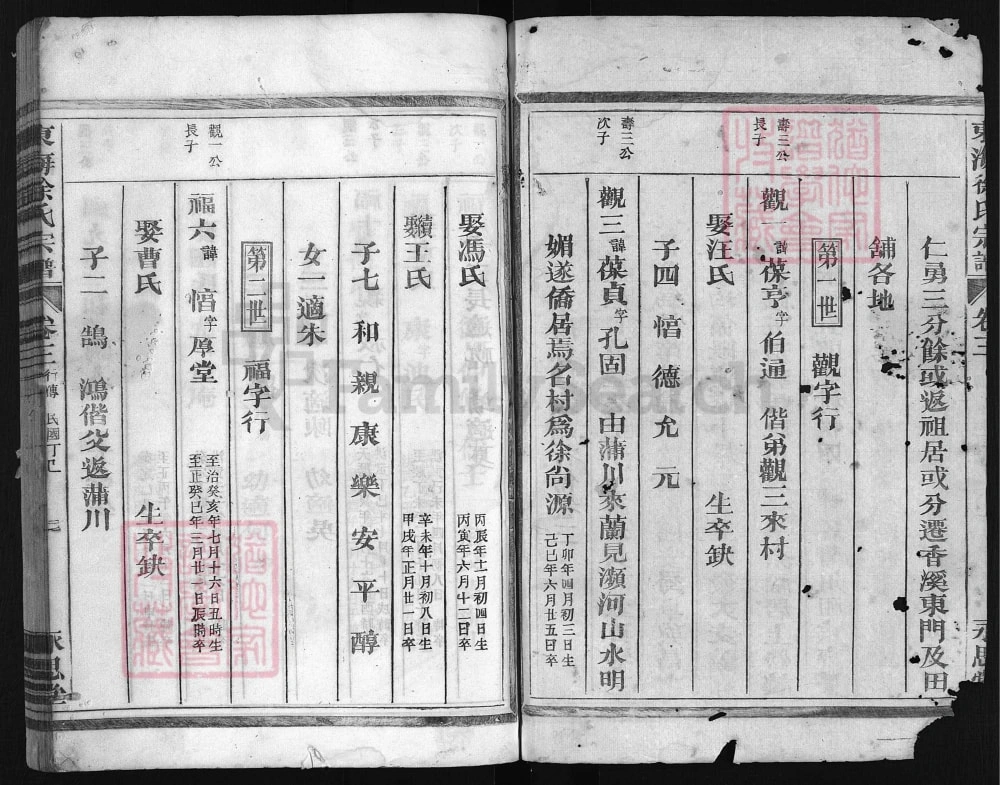 東海徐氏宗譜 卷三
仁勇三分餘或返祖居或分遷香溪東門及田
舖各地
第一世 觀字行
壽三公長子
觀一 諱葆亭字伯通 偕弟觀三來村
娶汪氏 生卒缺
子四 愔德允元
壽三公次子
觀三諱葆貞字孔固 由蒲川來蘭見瀕河山水明
媚遂僑居焉名村爲徐尚源 丁卯年四月初三日生 己巳年六月廿五日卒
娶馮氏 丙辰年十一月初四日生 丙寅年六月十二日卒
續娶王氏 辛未年十月初八日生 甲戌年正月廿一日卒
子七 和親康樂安平醇
女一適朱
第二世 福字行
觀一公長子
福六諱愔字厚堂 至治癸亥年七月十六日丑時生 至正癸巳年三月廿一日辰時卒
娶曹氏 生卒缺
子二 鵠 鴻偕父返蒲川
東海徐氏宗譜 卷三 行傳 民國丁巳 永思堂